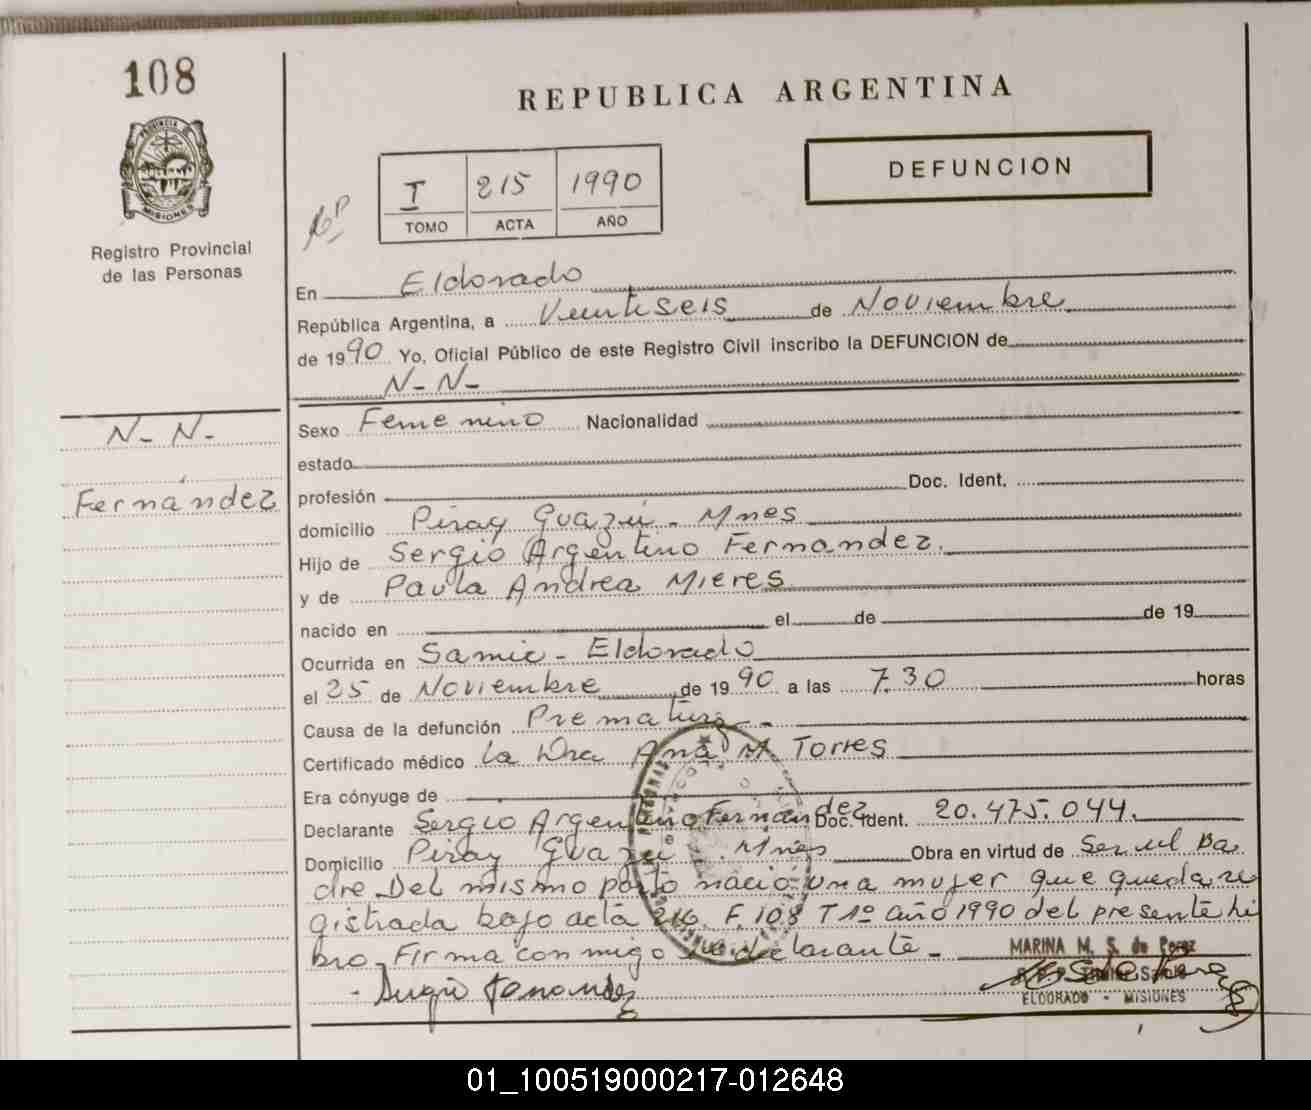 108
REPUBLICA ARGENTINA
PROVINCIA DE
MISIONES
Registro Provincial
de las Personas
I 215 1990
TOMO ACTA AÑO
DEFUNCION
En Eldorado
República Argentina, a Veintiseis de Noviembre
de 1990 Yo, Oficial Público de este Registro Civil inscribo la DEFUNCION de
N-N-
N-N-
Fernández
Sexo Femenino Nacionalidad
estado
profesión Doc. Ident.
domicilio Piray Guazú - Mnes
Hijo de Sergio Argentino Fernandez.
y de Paula Andrea Mieres
nacido en el de de 19
Ocurrida en Samic - Eldorado
el 25 de Noviembre de 1990 a las 7.30 horas
Causa de la defunción Prematura -
Certificado médico La Dra Ana M. Torres
Era cónyuge de
Declarante Sergio Argentino Fernandez Doc. Ident. 20.475.044.
Domicilio Piray Guazú . Mnes Obra en virtud de Ser el Pa
dre Del mismo parto nacio una mujer que queda re
gistrada bajo acta 216. F. 108 T 1º año 1990 del presente li
bro - Firma conmigo el declarante -
MARINA M. S. de Perez
ELDORADO - MISIONES
Sergio Fernandez
01_100519000217-012648